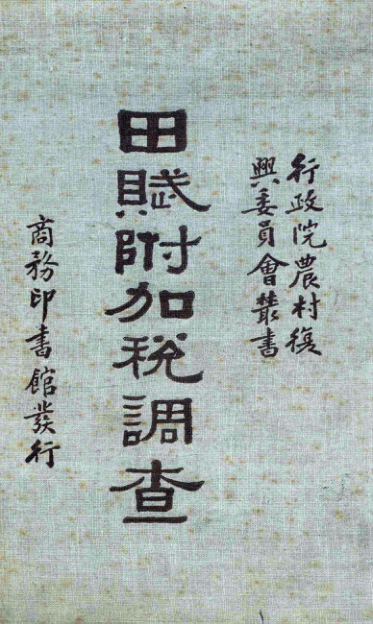 行政院農村復
興委員會叢書
田賦附加稅調查
商務印書館發行